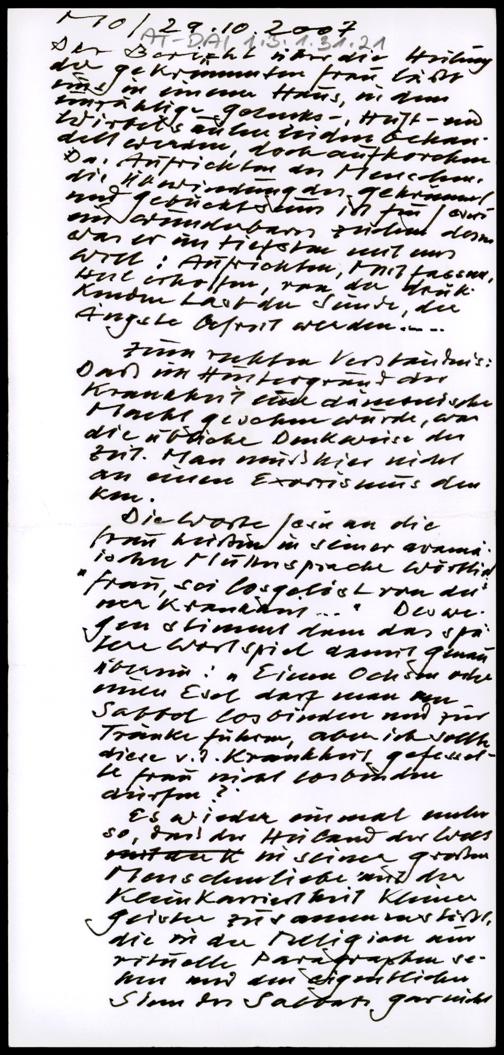 Mo / 29.10.2007
AT-DA / 1.3.1.31.21
Der Bericht über die Heilung
der gekrümmten Frau läßt
uns in einem Haus, in dem
unzählige Gelenks-, Hüft- und
Wirbelsäulenleiden behan-
delt werden, doch aufhorchen.
Das Aufrichten des Menschen,
die Überwindung des gekrümmt
und gebückt Seins ist für
ein wunderbares Zeichen dessen
was er im tiefsten mit uns
will: Aufrichten, Mut fassen,
Heil erhoffen, von der drük-
kenden Last der Sünde, der
Ängste befreit werden....
Zum rechten Verständnis:
Daß im Hintergrund der
Krankheit eine dämonische
Macht gesehen wurde, war
die übliche Denkweise der
Zeit. Man muß hier nicht
an einen Exorzismus den
ken.
Die Worte Jesu an die
Frau heißen in seiner aramä-
ischen Muttersprache wörtlich
"Frau, sei losgelöst von dei
ner Krankheit..." Deswe-
gen stimmt dann das spä-
tere Wortspiel damit genau
überein: "Einen Ochsen oder
einen Esel darf man am
Sabbat losbinden und zur
Tränke führen, aber ich sollte
diese v.d. Krankheit gefessel-
te Frau nicht losbinden
dürfen?"
Es wieder einmal mehr
so, daß der Heiland der Welt
in seiner großen
Menschenliebe mit der
Kleinkariertheit kleiner
Geister zusammenstößt,
die in der Religion nur
rituelle Paragraphen se-
hen und den eigentlichen
Sinn des Sabbats gar nicht